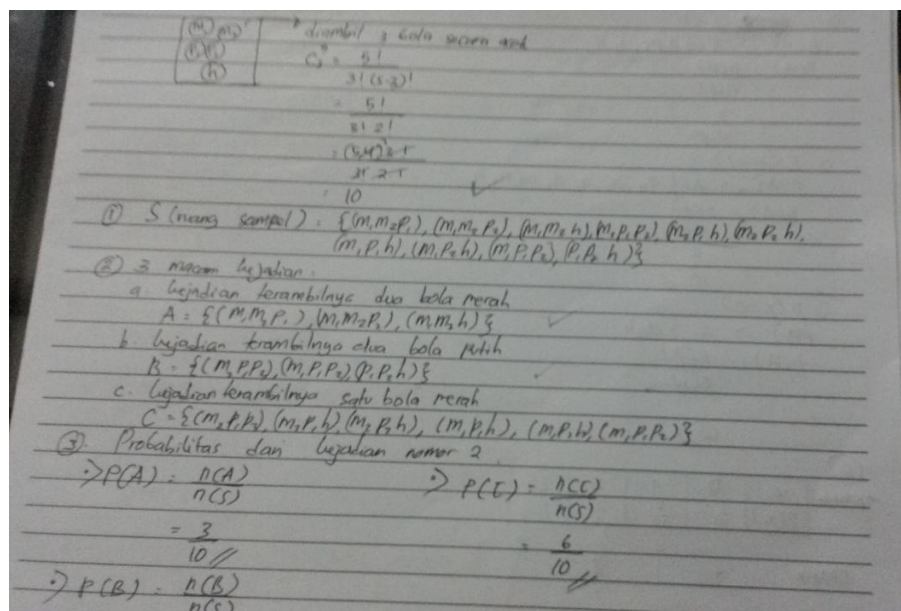 m₁ m₂
P₁ P₂
h
diambil 3 bola secara acak
C₃⁵ = 5!
3! (5-3)!
= 5!
3! 2!
= 10
① S (ruang sampel) = {(m₁m₂P₁), (m₁m₂P₂), (m₁m₂h), (m₂P₁P₂), (m₂P₁h), (m₂P₂h),
(m₁P₁h), (m₁P₂h), (m₁P₁P₂), (P₁P₂h)}
② 3 macam kejadian.
a. kejadian terambilnya dua bola merah
A = {(m₁m₂P₁), (m₁m₂P₂), (m₁m₂h)}
b. kejadian trambilnya dua bola putih
B = {(m₂P₁P₂), (m₁P₁P₂), (P₁P₂h)}
c. kejadian terambilnya satu bola merah
C = {(m₂P₁P₂), (m₂P₁h), (m₂P₂h), (m₁P₁h), (m₁P₂h), (m₁P₁P₂)}
③ Probabilitas dari kejadian nomor 2
P(A) = n(A) P(C) = n(C)
n(S) n(S)
= 3 = 6
10 10
P(B) = n(B)
n(S)